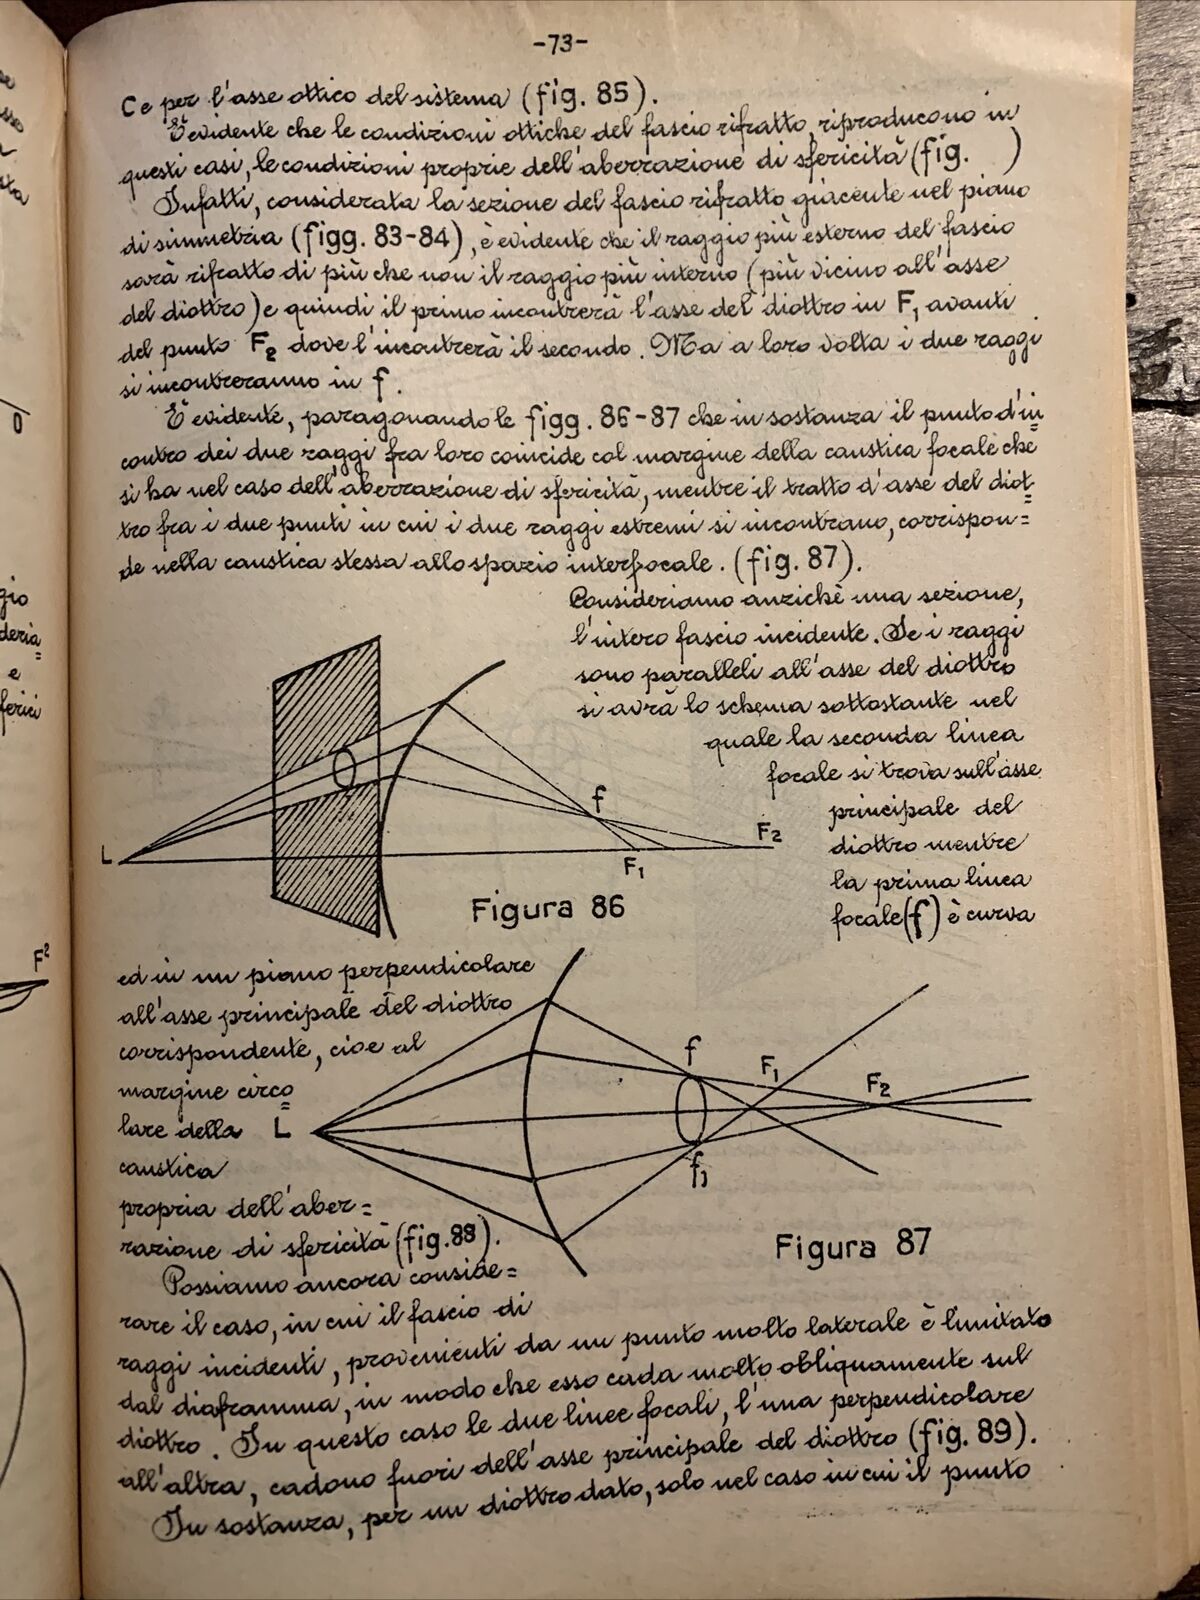 -73-
Ce per l'asse ottico del sistema (fig. 85).
È evidente che le condizioni ottiche del fascio rifratto, riproducono in
questi casi, le condizioni proprie dell'aberrazione di sfericità (fig.    )
Infatti, considerata la sezione del fascio rifratto giacente nel piano
di simmetria (figg. 83-84), è evidente che il raggio più esterno del fascio
sarà rifratto di più che non il raggio più interno (più vicino all'asse
del diottro) e quindi il primo incontrerà l'asse del diottro in F₁ avanti
del punto F₂ dove l'incontrerà il secondo. Ma a loro volta i due raggi
si incontreranno in f.
È evidente, paragonando le figg. 86-87 che in sostanza il punto d'in=
contro dei due raggi fra loro coincide col margine della caustica focale che
si ha nel caso dell'aberrazione di sfericità, mentre il tratto d'asse del diot=
tro fra i due punti in cui i due raggi estremi si incontrano, corrispon=
de nella caustica stessa allo spazio interfocale. (fig. 87).
Consideriamo anzichè una sezione,
l'intero fascio incidente. Se i raggi
sono paralleli all'asse del diottro
si avrà lo schema sottostante nel
quale la seconda linea
focale si trova sull'asse
principale del
diottro mentre
la prima linea
focale (f) è curva
L
f
F₁
F₂
Figura 86
ed in un piano perpendicolare
all'asse principale del diottro
corrispondente, cioe al
margine circo=
lare della
caustica
propria dell'aber=
razione di sfericità (fig. 88).
L
f
f₁
F₁
F₂
Figura 87
Possiamo ancora conside=
rare il caso, in cui il fascio di
raggi incidenti, provenienti da un punto molto laterale è limitato
dal diaframma, in modo che esso cada molto obliquamente sul
diottro. In questo caso le due linee focali, l'una perpendicolare
all'altra, cadono fuori dell'asse principale del diottro (fig. 89).
In sostanza, per un diottro dato, solo nel caso in cui il punto
O
gio
deria=
e
ferici
F²